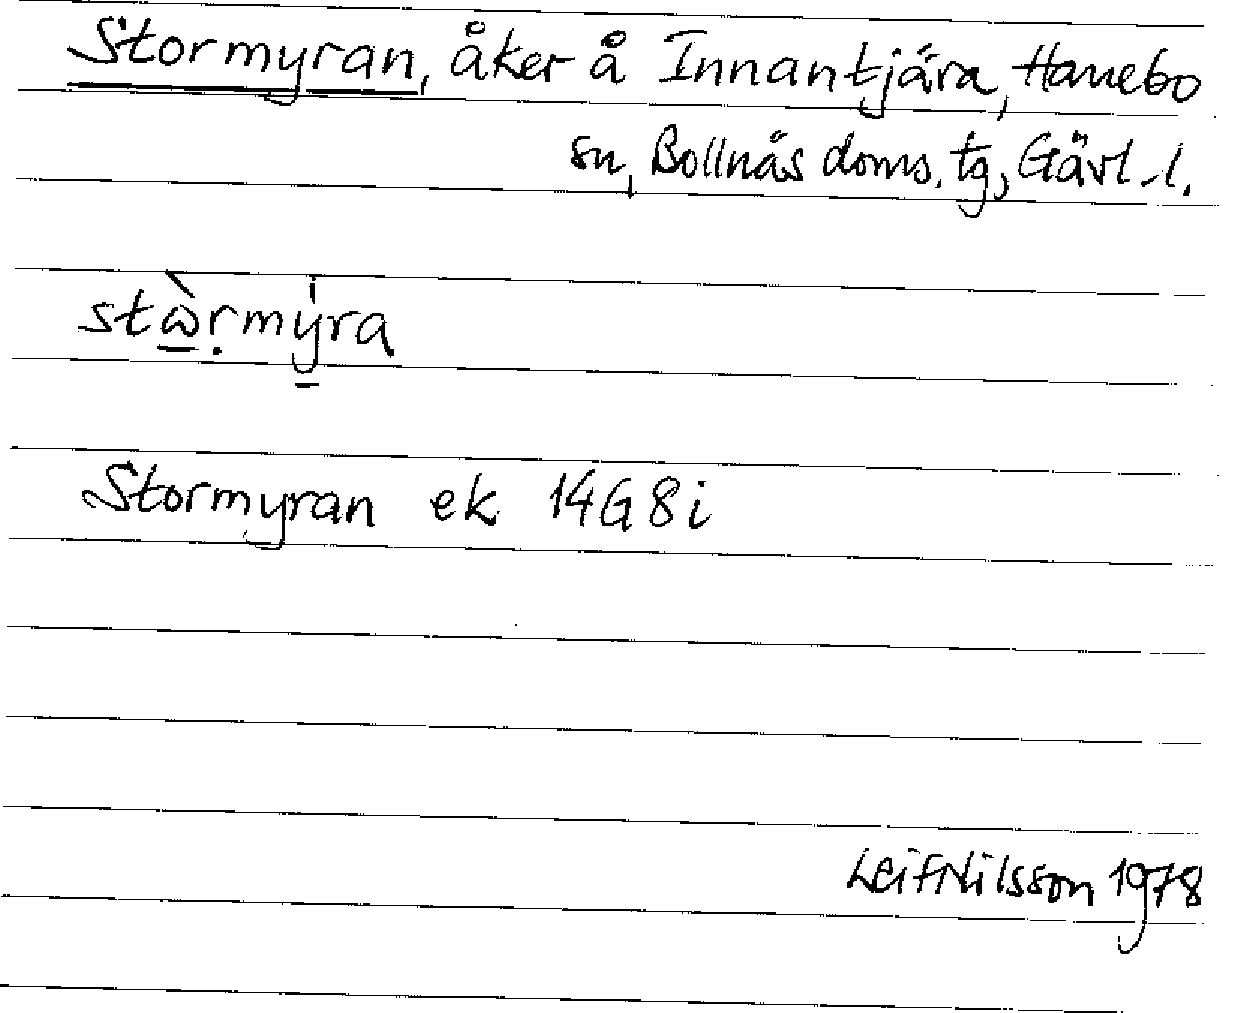 Stormyran, åker å Innantjära, Hanebo
sn, Bollnäs doms. tg, Gävl.l.
stὼṛmy̱ra
Stormyran ek 14G8i
Leif Nilsson 1978